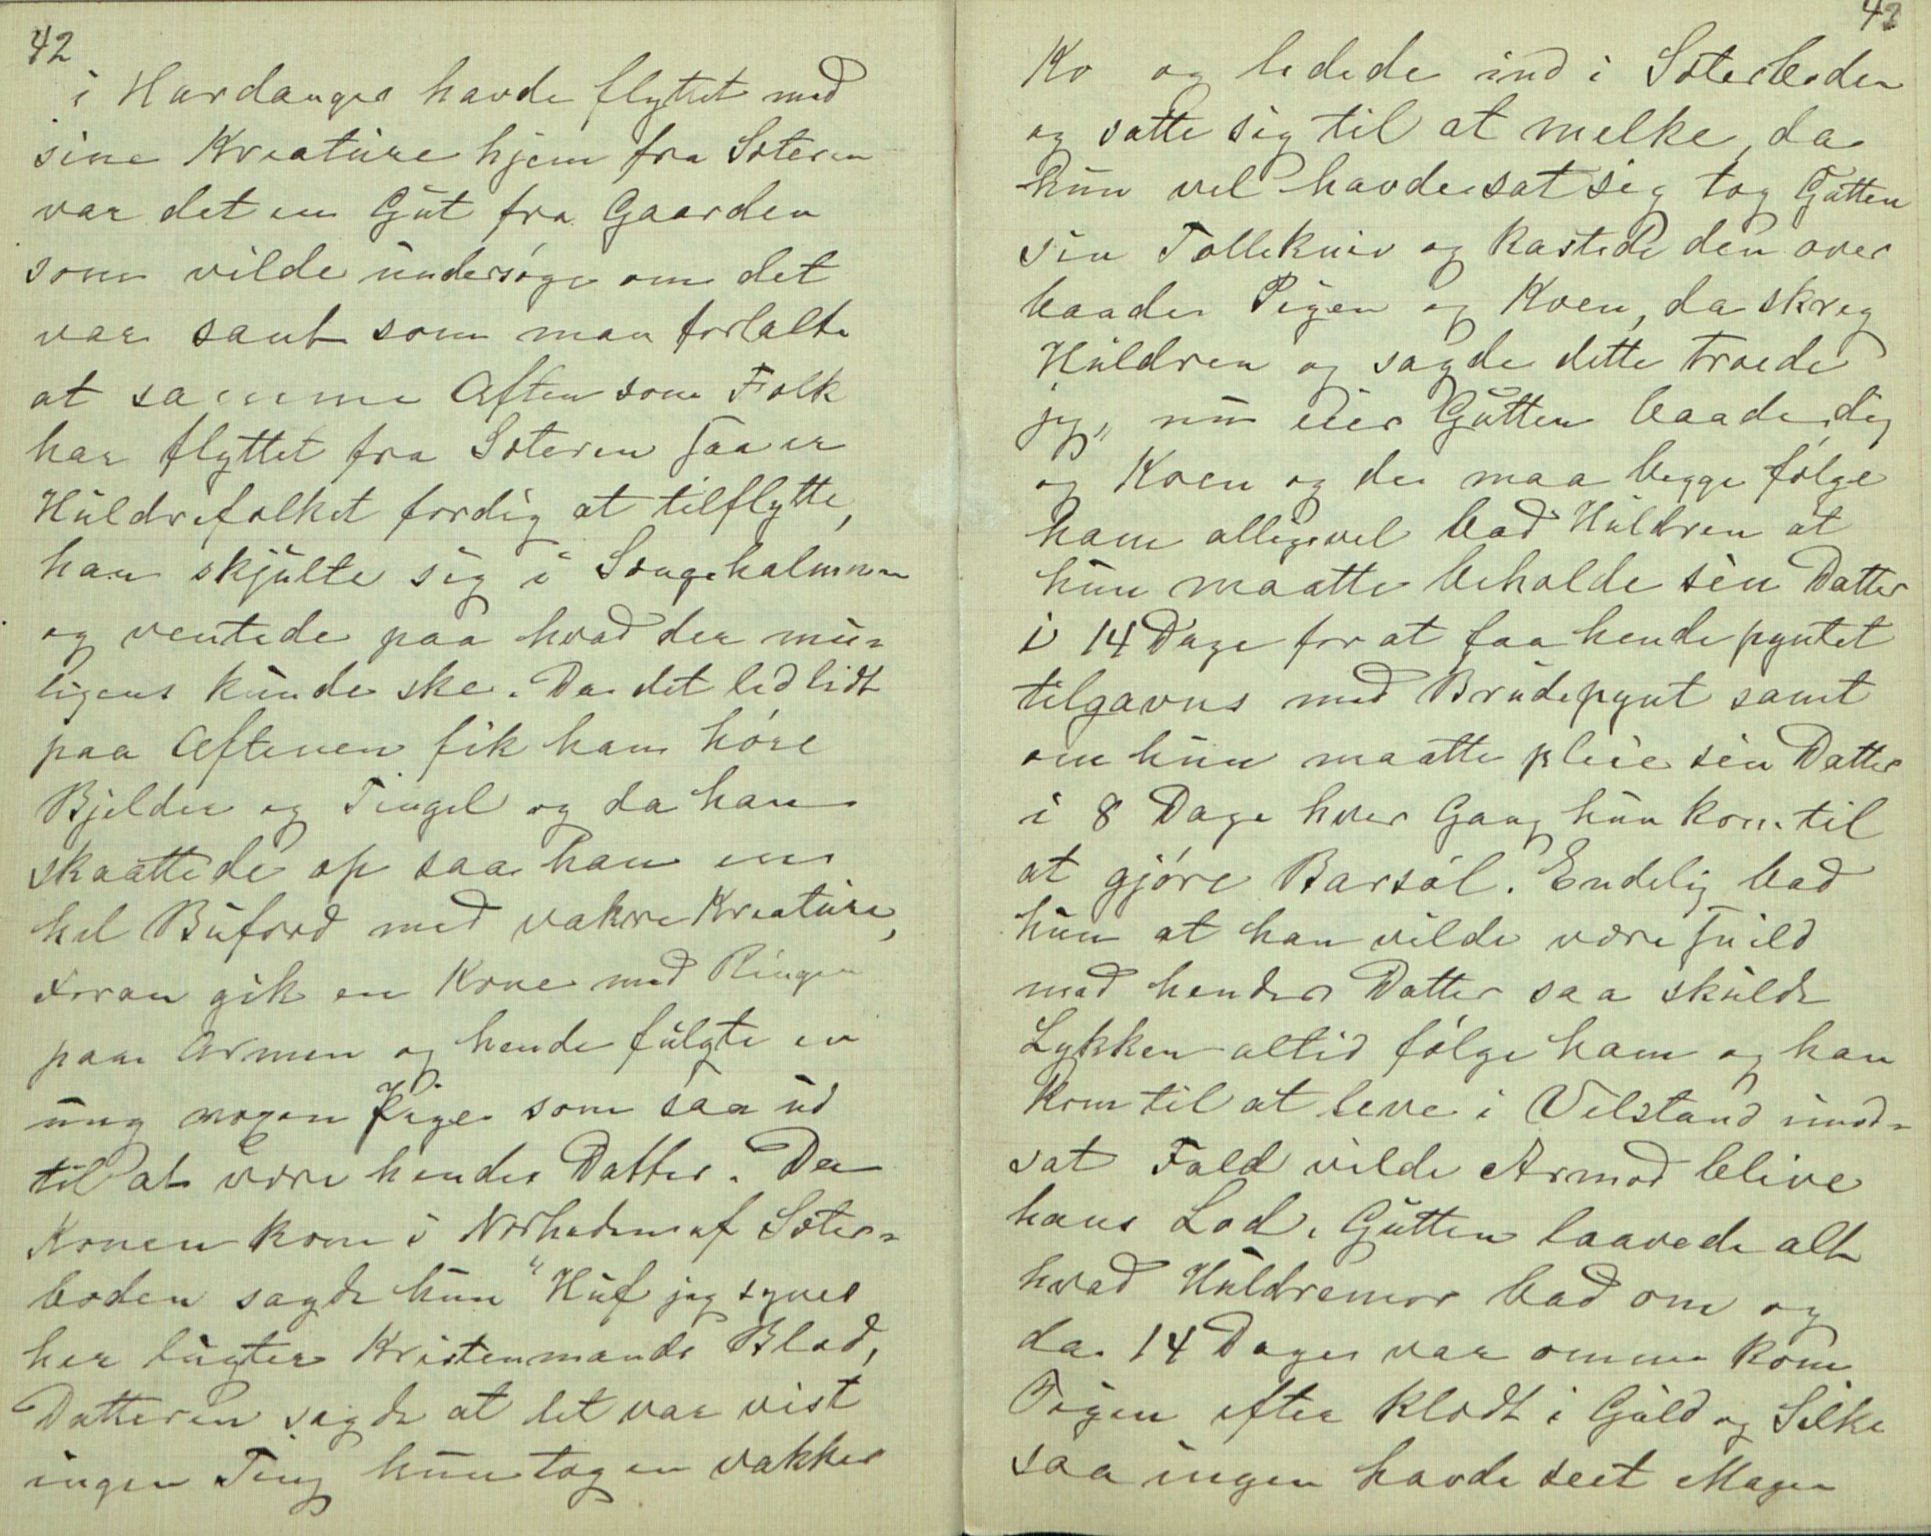 42
i Hardanger havde flyttet med
sine Kreature hjem fra Sæteren
var det en Gut fra Gaarden
som vilde undersøge om det
var sant som man fortalte
at samme Aften som Folk
har flyttet fra Sæteren saa er
Huldrefolket færdig at tilflytte,
han skjulte sig i Sengehalmen
og ventede paa hvad der mu-
ligens kunde ske. Da det led lidt
paa Aftenen fik han høre
Bjelder og Tingel og da han
skaattede op saa han en
hel Buferd med vakre Kreature,
foran gik en Kone med Ringen
paa Armen og hende fulgte en
ung voxen Pige som saa ud
til at være hendes Datter. Da
Konen kom i Nærheden af Sæter-
boden sagde hun "Huf jeg synes
her lugter Kristenmands Blod,
Datteren sagde at det var vist
ingen Ting hun tog en vakker
43
Ko og ledede ind i Sæterboden
og satte sig til at melke, da
hun vel havde sat sig tog Gutten
sin Tollekniv og kastede den over
baade Pigen og Koen, da skreg
Huldren og sagde dette troede
jeg, nu eier Gutten baade dig
og Koen og de maa begge følge
ham alligevel bad Huldren at
hun maatte beholde sin Datter
i 14 Dage for at faa hende pyntet
tilgavns med Brudepynt samt
om hun maatte pleie sin Datter
i 8 Dage hver Gang hun kom til
at gjøre Barsøl. Endelig bad
hun at han vilde være snild
mod hendes Datter saa skulde
Lykken altid følge ham og han
kom til at leve i Velstand imod-
sat Fald vilde Armod blive
hans Lod. Gutten laavede alt
hvad Huldremor bad om og
da 14 Dager var omme kom
Pigen efter klædt i Guld og Silke
saa ingen havde seet Magen